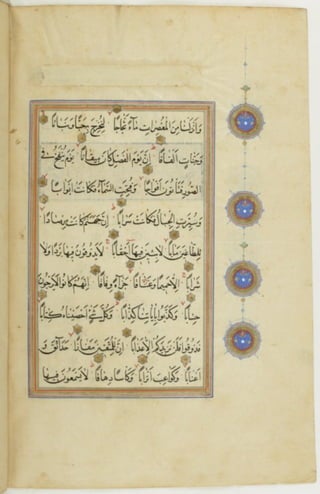 وَأَنزَلْنَا مِنَ الْمُعْصِرَاتِ مَاءً ثَجَّاجًا لِنُخْرِجَ بِهِ حَبًّا وَنَبَاتًا
وَجَنَّاتٍ أَلْفَافًا إِنَّ يَوْمَ الْفَصْلِ كَانَ مِيقَاتًا يَوْمَ يُنفَخُ فِي
الصُّورِ فَتَأْتُونَ أَفْوَاجًا وَفُتِحَتِ السَّمَاءُ فَكَانَتْ أَبْوَابًا
وَسُيِّرَتِ الْجِبَالُ فَكَانَتْ سَرَابًا إِنَّ جَهَنَّمَ كَانَتْ مِرْصَادًا
لِلطَّاغِينَ مَآبًا لَابِثِينَ فِيهَا أَحْقَابًا لَا يَذُوقُونَ فِيهَا بَرْدًا وَلَا
شَرَابًا إِلَّا حَمِيمًا وَغَسَّاقًا جَزَاءً وِفَاقًا إِنَّهُمْ كَانُوا لَا يَرْجُونَ
حِسَابًا وَكَذَّبُوا بِآيَاتِنَا كِذَّابًا وَكُلَّ شَيْءٍ أَحْصَيْنَاهُ كِتَابًا
فَذُوقُوا فَلَن نَّزِيدَكُمْ إِلَّا عَذَابًا إِنَّ لِلْمُتَّقِينَ مَفَازًا حَدَائِقَ وَ
أَعْنَابًا وَكَوَاعِبَ أَتْرَابًا وَكَأْسًا دِهَاقًا لَا يَسْمَعُونَ فِيهَا